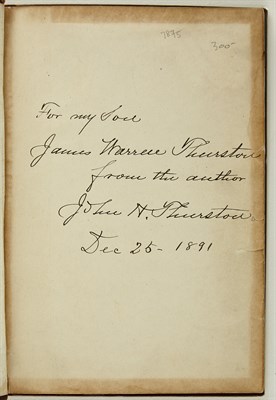 1875
300
For my Son
James Warren Thurston
from the author
John H. Thurston.
Dec 25 - 1891